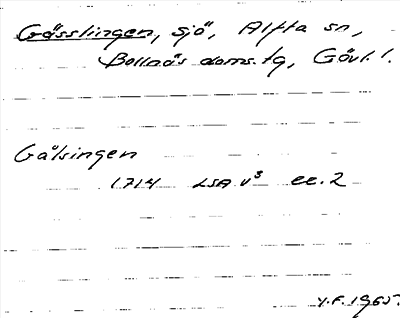 Gässlingen, sjö, Alfta sn,
Bollnäs doms.tg, Gävl. l.
Gålsingen
1714 LSA V³ ee. 2
Y.F. 1965